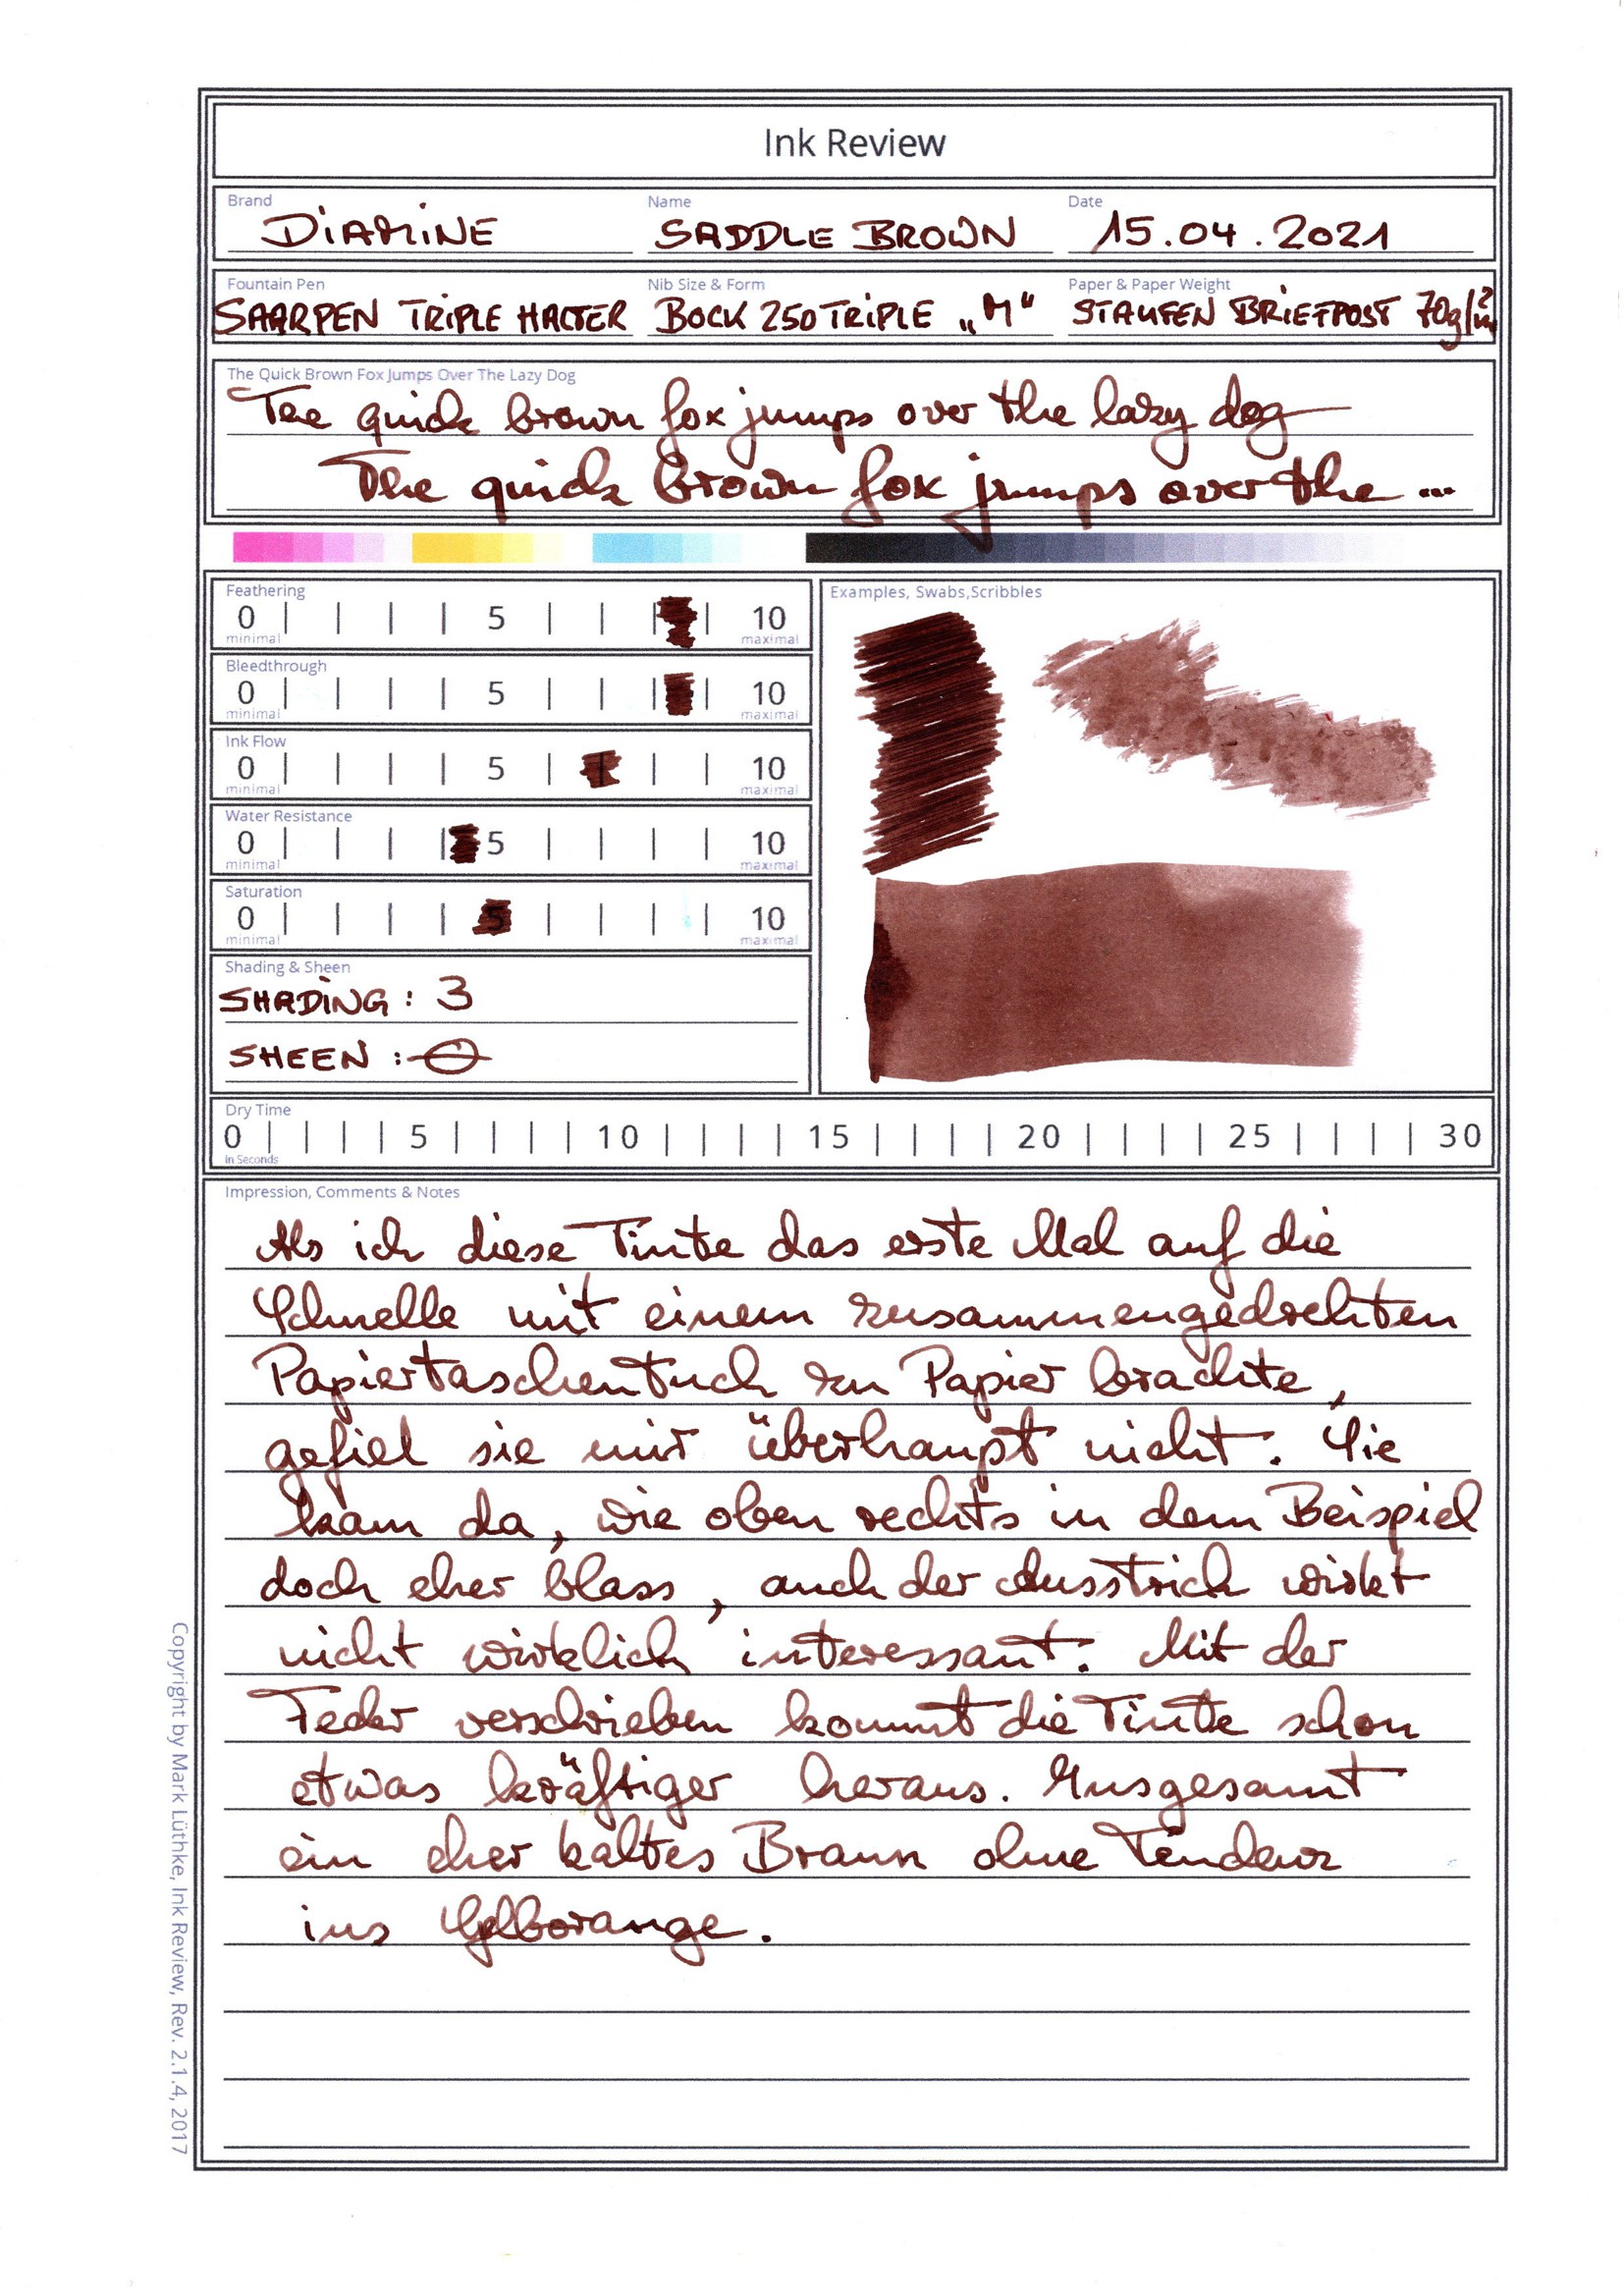 Ink Review
Brand Name Date
DiAMiNE SADDLE BROWN 15.04.2021
Fountain Pen Nib Size & Form Paper & Paper Weight
SAARPEN TRiPLE HALTER BOCK 250 TRiPLE „M“ STAUFEN BRiEFPOST 70g/m²
The Quick Brown Fox Jumps Over The Lazy Dog
The quick brown fox jumps over the lazy dog
The quick brown fox jumps over the ...
Feathering
0 5 10
minimal maximal
Bleedthrough
0 5 10
minimal maximal
Ink Flow
0 5 10
minimal maximal
Water Resistance
0 5 10
minimal maximal
Saturation
0 5 10
minimal maximal
Shading & Sheen
SHADiNG : 3
SHEEN :
Examples, Swabs,Scribbles
Dry Time
0 5 10 15 20 25 30
In Seconds
Impression, Comments & Notes
Als ich diese Tinte das erste Mal auf die
Schnelle mit einem zusammengedrehten
Papiertaschentuch zu Papier brachte,
gefiel sie mir überhaupt nicht. Sie
kam da, wie oben rechts in dem Beispiel
doch eher blass, auch der Ausstrich wirkt
nicht wirklich interessant. Mit der
Feder verschrieben kommt die Tinte schon
etwas kräftiger heraus. Insgesamt
ein eher kaltes Braun ohne Tendenz
ins Gelborange.
Copyright by Mark Lüthke, Ink Review, Rev. 2.1.4, 2017